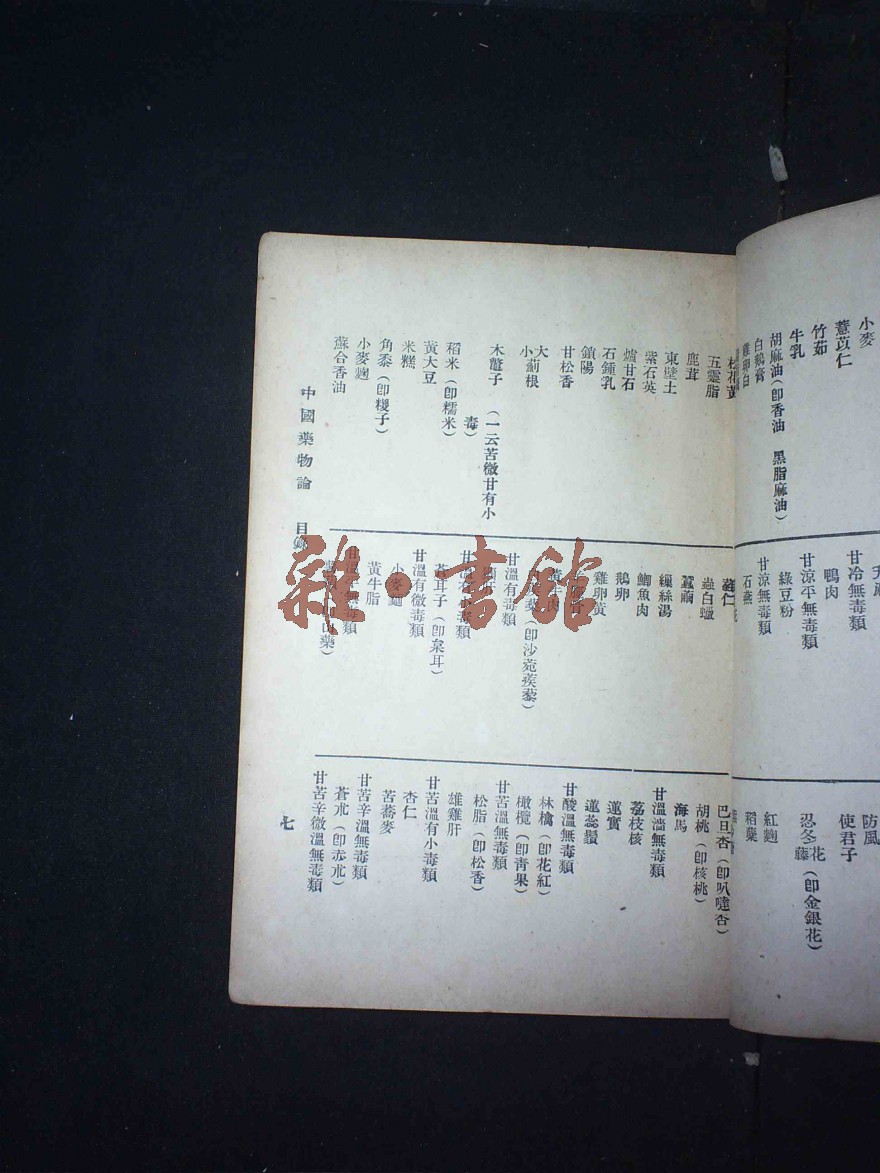 小麥
薏苡仁
竹茹
牛乳
胡麻油(卽香油 黑脂麻油)
白鵝膏
雞卵白
甘冷無毒類
鴨肉
甘涼平無毒類
綠豆粉
甘涼無毒類
石燕
防風
使君子
忍冬花藤(卽金銀花)
紅麯
稻䕸
五靈脂
鹿茸
東壁土
紫石英
爐甘石
石鍾乳
鎖陽
甘松香
大小薊根
木鼈子 (一云苦微甘有小毒)
稻米(卽糯米)
黃大豆
米糕
角黍(卽糉子)
小麥麯
蘇合香油
蕤仁
蟲白蠟
蠶繭
繅絲湯
鯽魚肉
鵝卵
雞卵黃
黃牛肉
(卽沙菀蒺藜)
甘溫有毒類
蒼耳子(卽枲耳)
甘溫有微毒類
小麥麪
黃牛脂
甘溫平無毒類
巴旦杏(卽叭噠杏)
胡桃(卽核桃)
海馬
甘溫濇無毒類
荔枝核
蓮實
蓮蕊鬚
甘酸溫無毒類
林檎(卽花紅)
橄欖(卽靑果)
甘苦溫無毒類
松脂(卽松香)
雄雞肝
甘苦溫有小毒類
杏仁
苦蕎麥
甘苦辛溫無毒類
蒼朮(卽赤朮)
甘苦辛微溫無毒類
中國藥物論 目錄
七
雜·書館